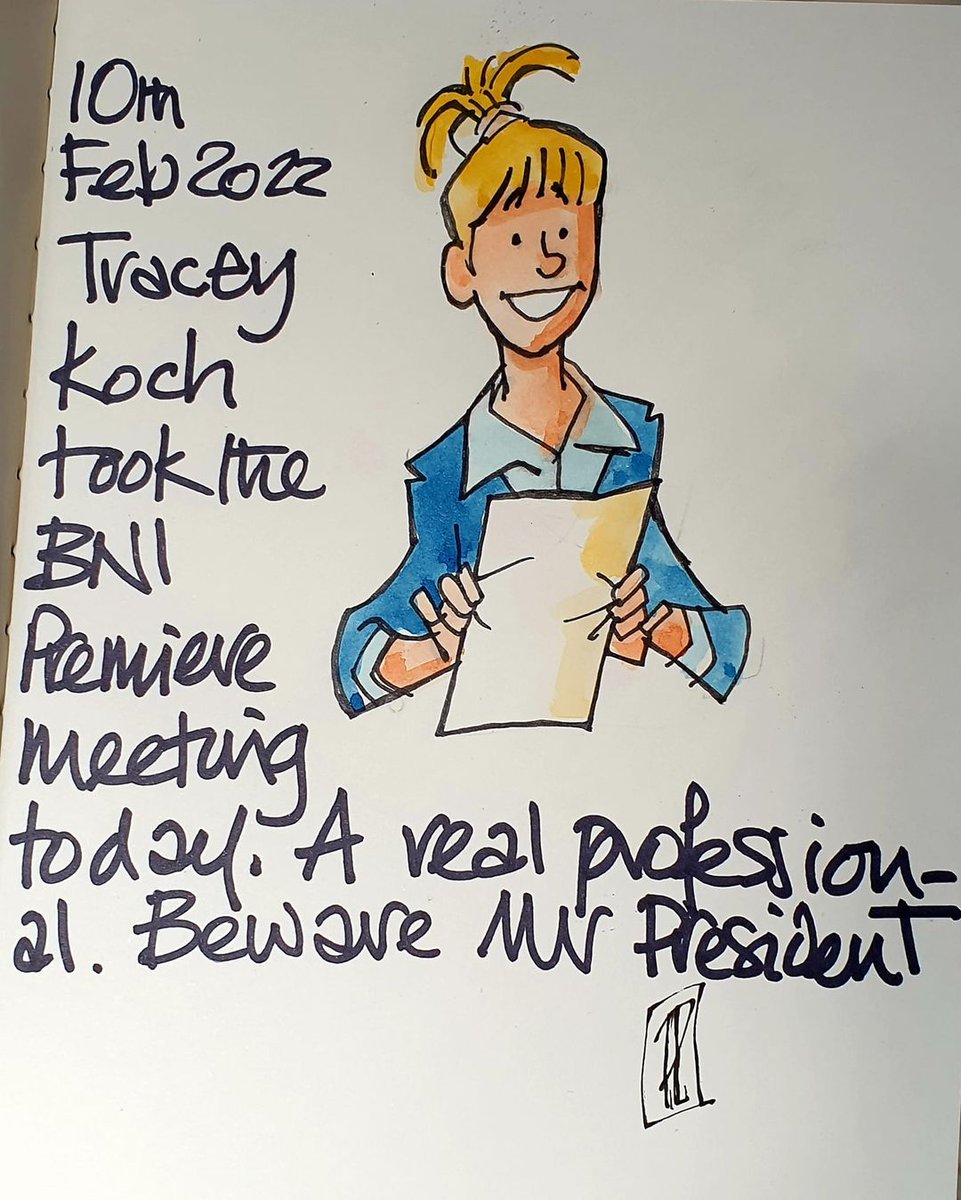 10th
Feb 2022
Tracey
Koch
took the
BNI
Premiere
meeting
today. A real profession-
al. Beware Mr President